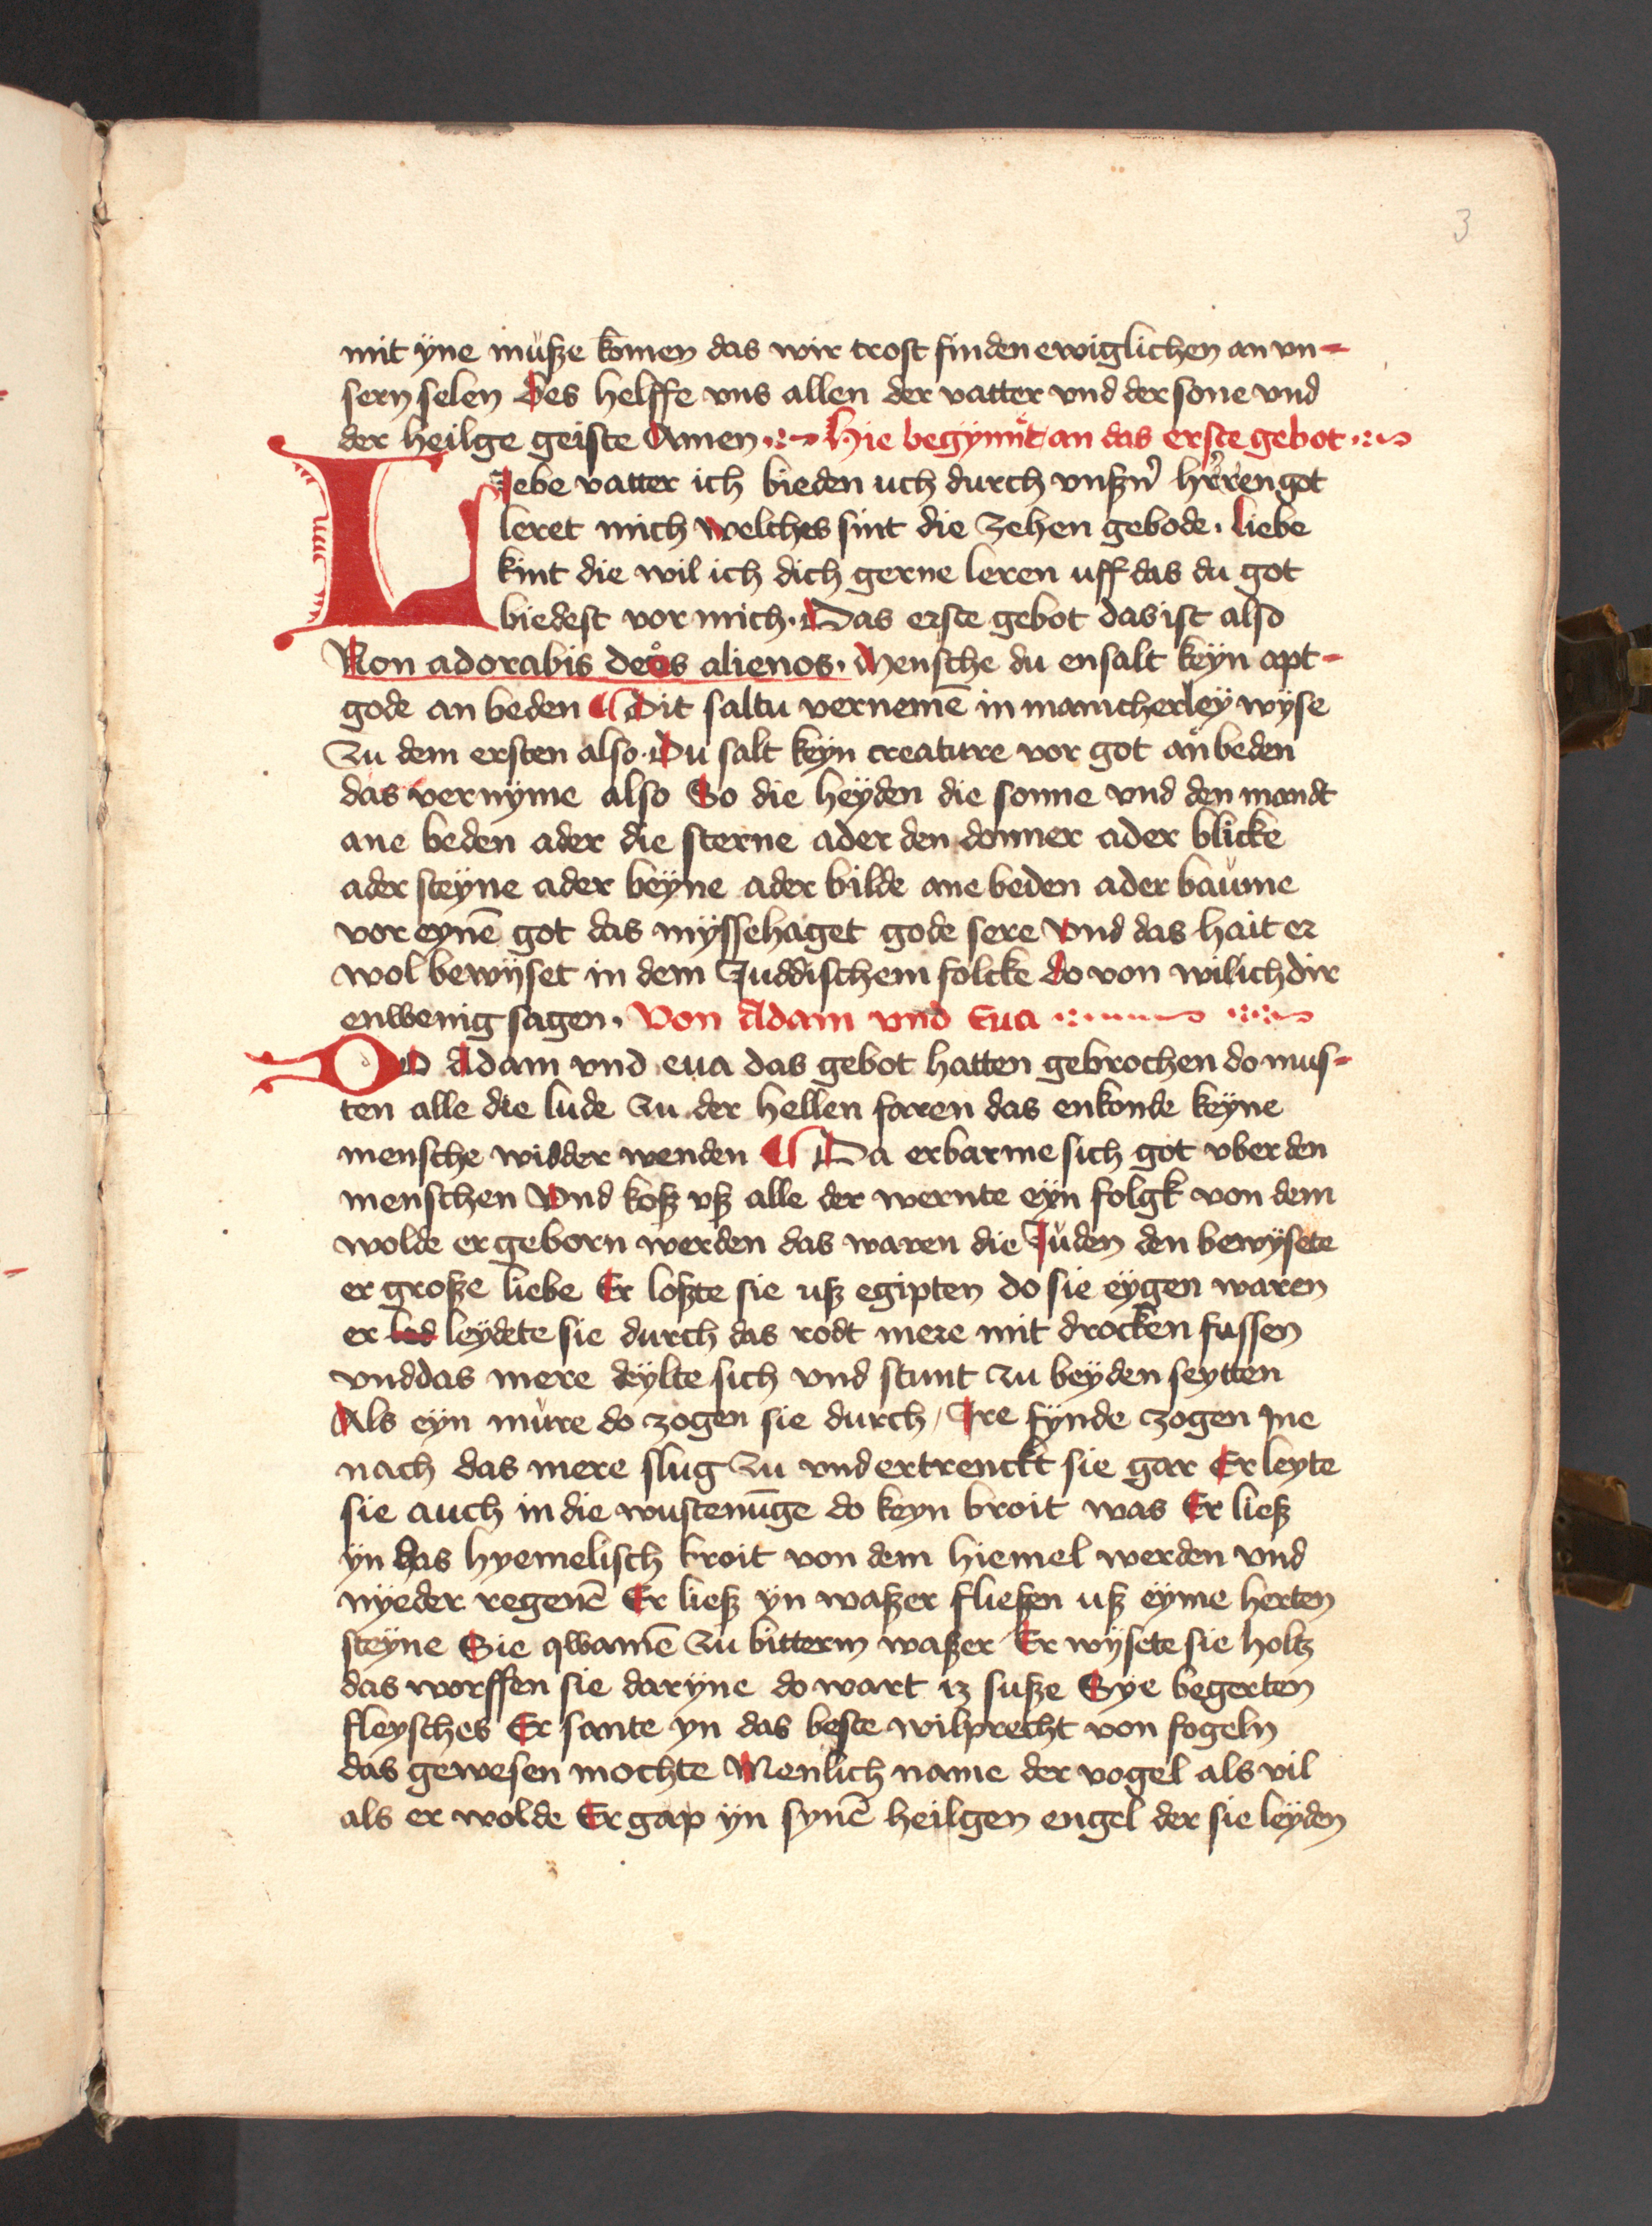 3
mit ÿne musze komen das wir trost finden ewiglichen an vn-
sern selen Des helffe vns allen der vatter vnd der sone vnd
der heilge geiste Amen Hie begÿnnet an das erste gebot
Liebe vatter ich bieden uch durch vnszn̄ hr̄ren got
leret mich welches sint die zehen gebode. liebe
kint die wil ich dich gerne leren uff das du got
biedest vor mich. Das erste gebot das ist also
Non adorabis deos alienos. Mensche du ensalt keÿn apt-
gode an beden ¶ Dit saltu vernemē in mancherleÿ wÿse
Zu dem ersten also. Du salt keÿn creature vor got an beden
das vernÿme also So die heÿden die sonne vnd den mandt
ane beden ader die sterne ader den donner ader blicke
ader steÿne ader beÿne ader bilde ane beden ader baüme
vor eynē got das mÿssehaget gode sere vnd das hait er
wol bewÿset in dem Juddischem folcke do von wil ich dir
enwenig sagen. Von Adam vnd Eua
DO Adam vnd eua das gebot hatten gebrochen do mus-
ten alle die lude zu der hellen faren das enkonde keÿne
mensche widder wenden ¶ Da erbarme sich got vber den
menschen Vnd kosz vsz alle der wernte eÿn folgk von dem
wolde er geborn werden das waren die Juden den bewÿsete
er grosze liebe Er loszte sie usz egipten do sie eÿgen waren
er led leÿdete sie durch das rodt mere mit drocken fussen
vnd das mere deÿlte sich vnd stunt zu beÿden seytten
Als eÿn mure do zogen sie durch / Ire fÿnde zogen Jne
nach das mere slug zu vnd ertrenckt sie gar Er leyte
sie auch in die wustenūge do keyn broit was Er liesz
ÿn das hyemelisch broit von dem hiemel werden vnd
nÿeder regenē Er liesz ÿn waszer flieszen usz eÿme herten
steÿne Sie qwamē zu bitterm waszer Er wÿsete sie holtz
das worffen sie darÿne do wart iz susze Sÿe begerten
fleysches Er sante yn das beste wilprecht von fogeln
das gewesen mochte Menlich name der vogel als vil
als er wolde Er gap ÿn synē heilgen engel der sie leÿden